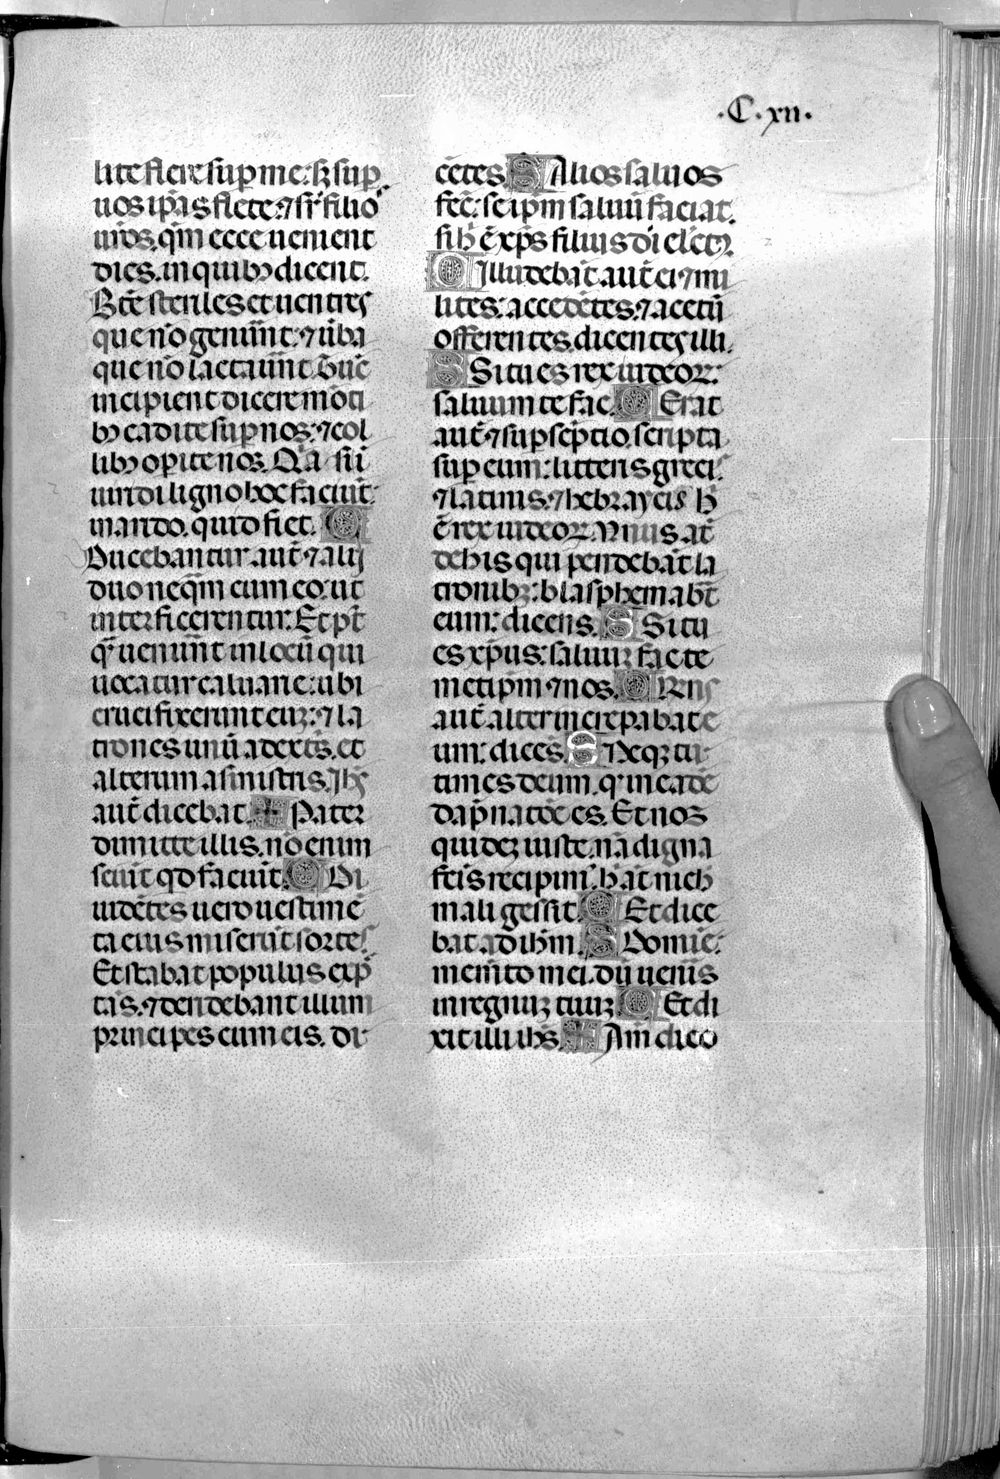 ·C·xii·
lite flere sup me: sꝫ sup
uos ip̄as flete: ⁊ sr̄ filio
ur̄os. qm̄ ecce uenient
dies. in quibꝰ dicent.
Bt̄e steriles et uentres
que nō genuūnt: ⁊ ub̄a
que nō lactauūnt. Tūc
incipient dicere mōti
bꝰ cadite sup nos: ⁊ col
libꝰ operite nos. Qͣa sīi
uiridi ligno hoc faciūt:
in arido. quid fiet. C
Ducebantur aut̄ ⁊ alij
duo neqͣm cum eo: ut
interficerentur: Et pt̄
qͣ uenūnt in locū qui
uocatur caluarie: ubi
crucifixerunt euꝫ: ⁊ la
trones unū a dextr̄s. et
alterum a sinistris. Ihs̄
aut̄ dicebat. ✚ Pater
dimitte illis. nō enim
sciūt qd̄ faciūt. C Di
uidētes uero uestimē
ta eius miserūt sortes.
Et stabat populus exp̄
tās. ⁊ deridebant illum
principes cum eis. di
cētes. S Alios saluos
fec̄: seip̄m saluū faciat.
si hͥ ē xp̄s filius dī elect⁊
C Illudebāt aut̄ ei ⁊ mi
lites: accedētes. ⁊ acetū
offerentes. dicentes illi.
S Si tu es rex iudeoꝝ:
saluum te fac. C Erat
aut̄ ⁊ sup sc̄ptio. scripta
sup eum: litteris grecis
⁊ latinis. ⁊ hebraycis hͥ
ē rex iudeoꝝ. Unus at̄
de his qui pendebāt la
tronibꝫ: blasphemabt̄
eum: dicens. S Si tu
es xp̄us: saluuꝫ fac te
metip̄m ⁊ nos. C Rn̄s
aut̄ alter increpabat e
um: dicēs. S Neqꝫ tu
times deum. qͥ in eadē
dap̄natōe es. Et nos
quideꝫ iuste. nā digna
fc̄is recipimꝰ. hͥ āt nichͥ
mali gessit. C Et dice
bat ad ih̄m. S Domie:
memēto mei. dū uenis
in regnuꝫ tuuꝫ C Et di
xit illi ihs̄. ✚ Am̄ dico